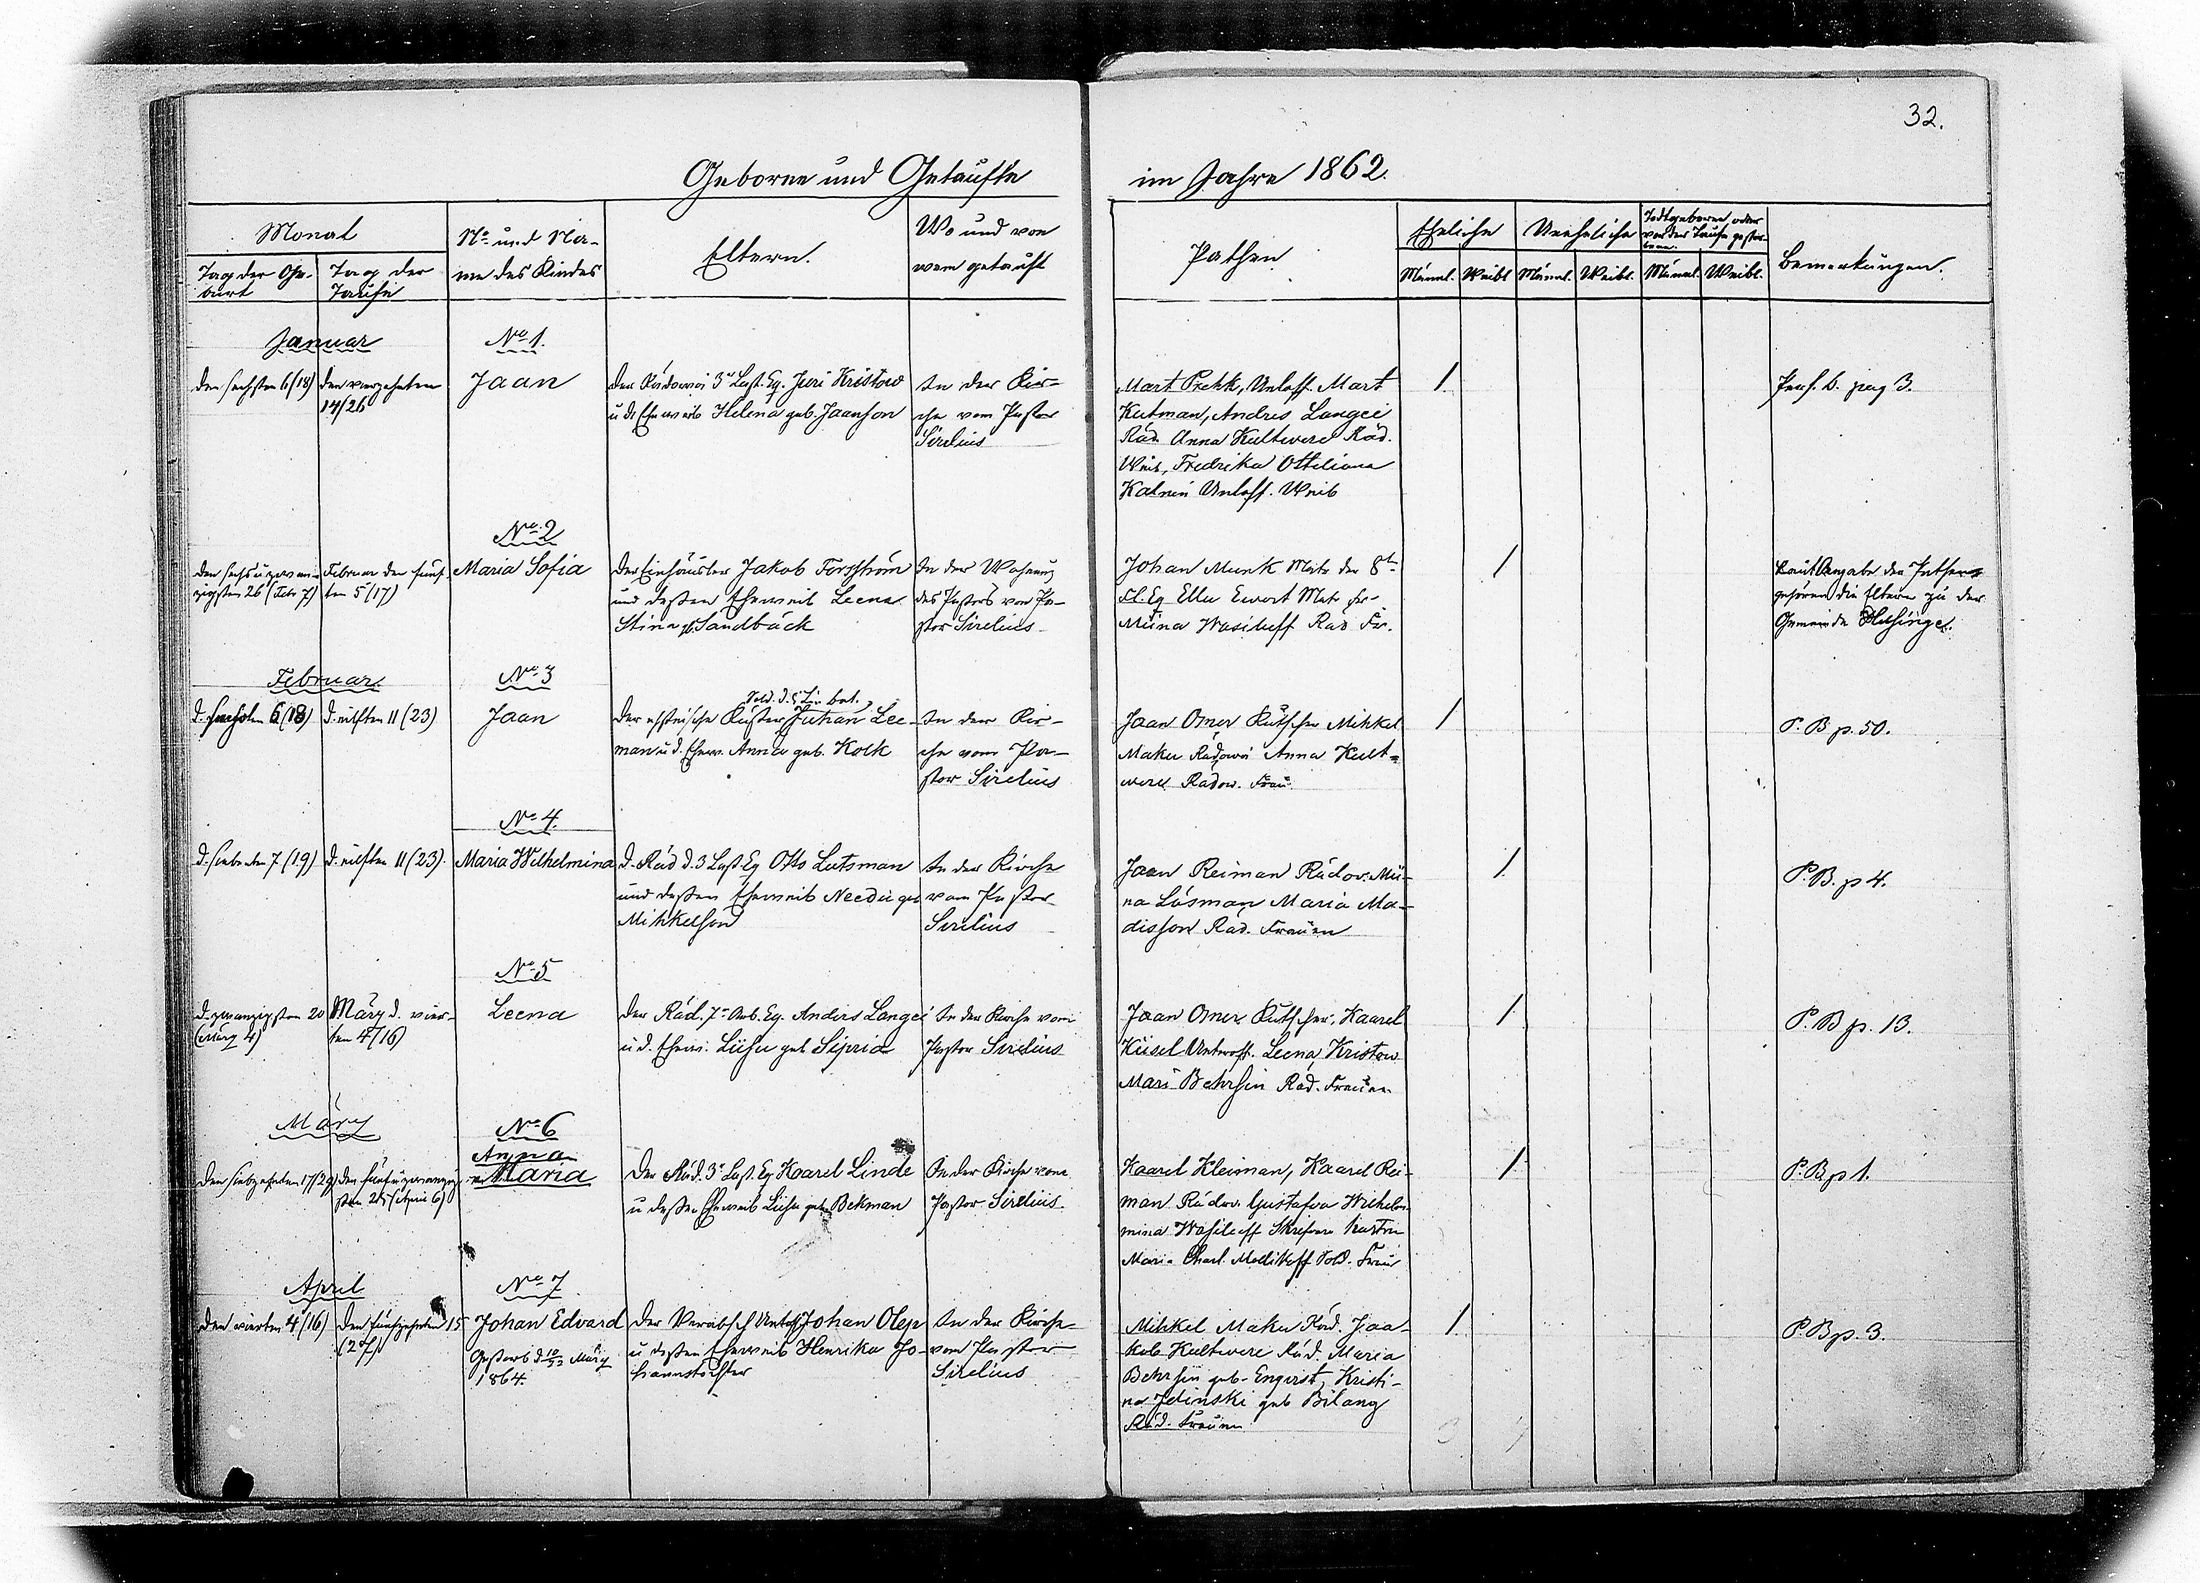 32.
Geborne und Getaufte
im Jahre 1862.
Monat
Tag der Geburt
Tag der Taufe
No und Name des Kindes
Eltern.
Wo und von
wem getauft
Pathen
Eheliche
Uneheliche
Todtgeborene oder
vor der Taufe gestorbene.
Männl. Weibl Männl. Weibl. Männl. Weibl.
Bemerkungen.
Januar
No 1.
den sechsten 6/(18)
den vierzehnten
14/26
Jaan
Der Rädowoi 3r Last. Eq. Juri Kristow
u. d. Eheweib Helena geb. Jaanson
In der Kir-
che vom Pastor
Sirelius
Mart Prehk, Unteroff. Mart
Kutman, Andres Langei
Räd. Anna Kultwere Räd.
Weib, Fredrika Ottiliana
Katrin Unteroff. Weib
/
Pers. b. pag 3.
No 2
den sechsundzwan-
zigsten 26 (Febr 7)
Februar den fünf-
ten 5/(17)
Maria Sofia
Der Einhäusler Jakob Forsström
und dessen Eheweib Leena
Stina gb. Sandbäck
In der Wohnung
des Pastors von Pa-
stor Sirelius
Johan Munk Matr. der 8t.
Fl. Eq Ellu Ewert Matr. Fr.
Miina Wasileff Räd Fr.
/
Laut Angabe der Pathen
gehören die Eltern zu der
Gemeinde Helsinge.
Februar.
No 3
d. sechsten 6 (18)
d. eilften 11 (23)
Jaan
Der ehstnische Küster Juhan Lee-
man u. d. Ehew. Anna geb. Kolk
In der Kir-
che vom Pa-
stor Sirelius
Jaan Omer Kutscher Mihkel
Maku Radowoi Anna Kult-
were Radow. Frau.
/
P. B p. 50.
No 4.
d. siebenten 7 (19)
d. eilften 11 (23).
Maria Wilhelmina
d. Räd d. 3 Last Eq Otto Lutsman
und dessen Eheweib Needu geb
Mihkelson
In der Kirche
vom Pastor
Sirelius
Jaan Reiman Rädow. Mii-
na Lösman Maria Ma-
disson Räd. Frauen
/
P. B. p 4.
No 5
d. zwanzigsten 20
(März 4)
März d. vier-
ten 4/16)
Leena
Der Räd. 7r Arb. Eq. Anders Langei
u. d. Ehew. Liisu geb Sipria
In der Kirche vom
Pastor Sirelius
Jaan Omer Kutscher, Kaarel
Kiisel Unteroff. Leena Kristow
Mari Behrsin Räd. Frauen
/
P. B p. 13.
März
No 6
den siebzehnten 17/29)
den fünfundzwanzig-
sten 25 (April 6)
Anna
Maria
Der Räd. 3r Last. Eq Kaarel Linde
u dessen Eheweib Liisu geb Bekman
In der Kirche vom
Pastor Sirelius.
Kaarel Kleiman, Kaarel Rei-
man Rädow. Gustafva Wilhel-
mina Wasileff
Maria Charl. Mellikoff Sold. Frau
/
P. B p 1.
April
No 7
den vierten 4/(16)
den fünfzehnten 15
(27)
Johan Edvard
Gestorb d 10/22 März
1864.
Der Verabsch Unteroff Johan Olep
u dessen Eheweib Henrika Jo-
hannstochter
In der Kirche
vom Pastor
Sirelius
Mihkel Maku Räd. Jaa-
kob Kultwere Räd. Maria
Behrsin geb. Enqvist, Kristi-
na Jelinski geb Bilang
Räd. Frauen
/
P. B p. 3.